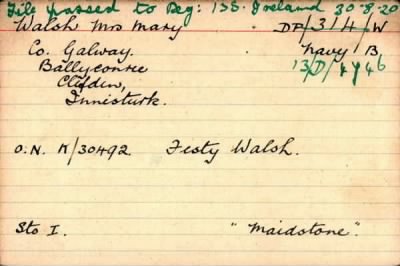 File passed to Reg: 1SS. Ireland 30·8·20
Walsh Mrs Mary DP/314/W
Co. Galway. Navy B
Ballyconree 13D/4746
Clifden,
Innisturk.
O.N. K/30492. Festy Walsh.
Sto I. "Maidstone".